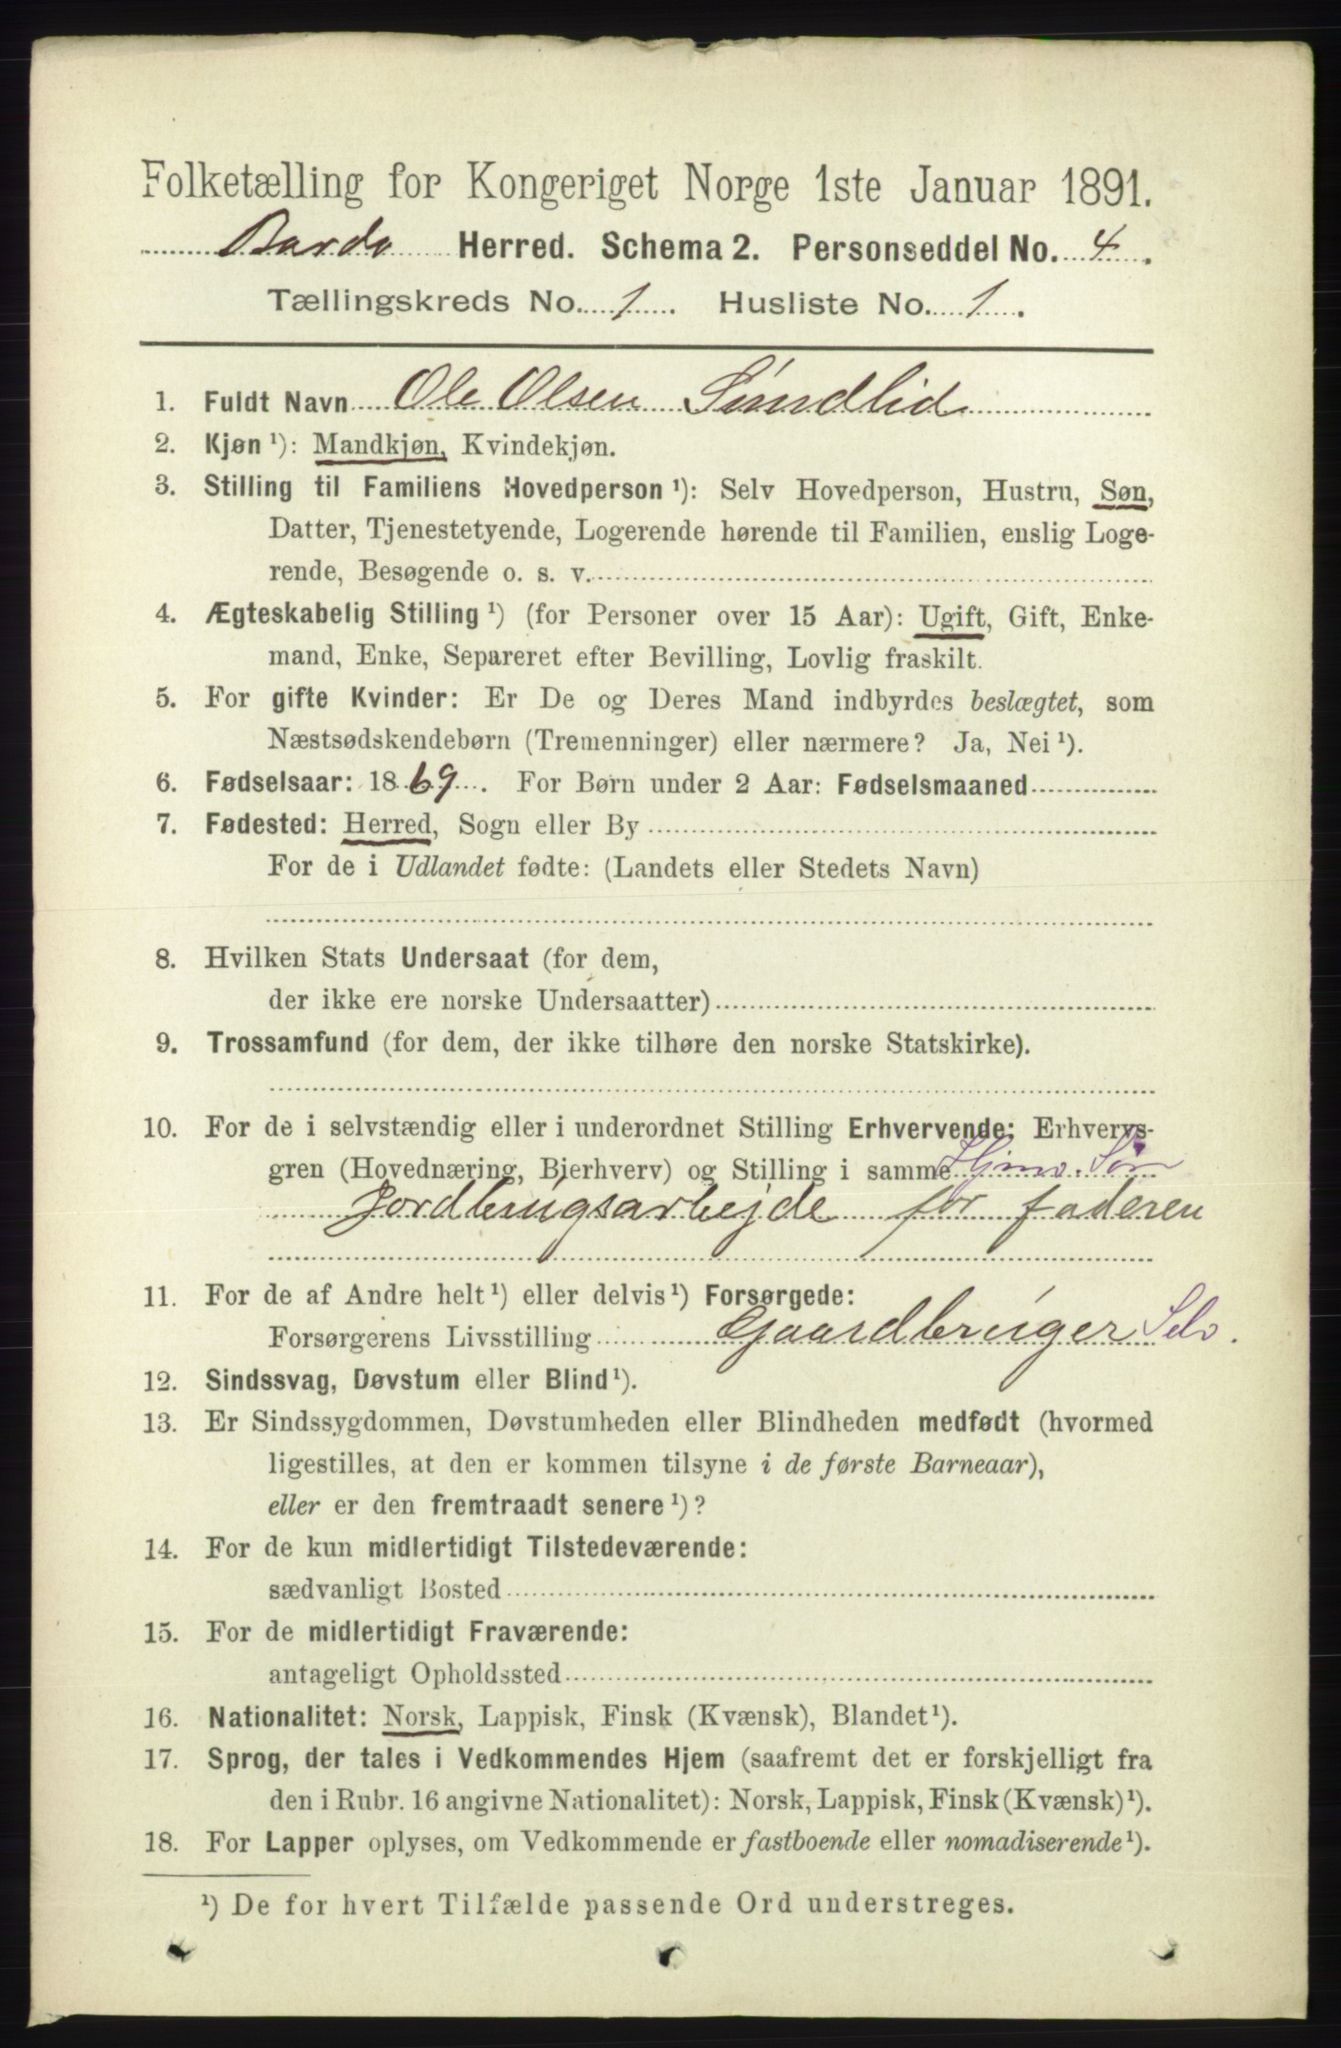 Folketælling for Kongeriget Norge 1ste Januar 1891.
Bardo Herred. Schema 2. Personseddel No. 4.
Tællingskreds No. 1. Husliste No. 1.
1. Fuldt Navn Ole Olsen Sundlid
2. Kjøn ¹): Mandkjøn, Kvindekjøn.
3. Stilling til Familiens Hovedperson ¹): Selv Hovedperson, Hustru, Søn,
Datter, Tjenestetyende, Logerende hørende til Familien, enslig Loge-
rende, Besøgende o. s. v.
4. Ægteskabelig Stilling ¹) (for Personer over 15 Aar): Ugift, Gift, Enke-
mand, Enke, Separeret efter Bevilling, Lovlig fraskilt.
5. For gifte Kvinder: Er De og Deres Mand indbyrdes beslægtet, som
Næstsødskendebørn (Tremenninger) eller nærmere? Ja, Nei ¹).
6. Fødselsaar: 1869. For Børn under 2 Aar: Fødselsmaaned
7. Fødested: Herred, Sogn eller By
For de i Udlandet fødte: (Landets eller Stedets Navn)
8. Hvilken Stats Undersaat (for dem,
der ikke ere norske Undersaatter)
9. Trossamfund (for dem, der ikke tilhøre den norske Statskirke).
10. For de i selvstændig eller i underordnet Stilling Erhvervende: Erhvervs-
gren (Hovednæring, Bierhverv) og Stilling i samme Hjmv. Søn
Jordbrugsarbejde for faderen
11. For de af Andre helt ¹) eller delvis ¹) Forsørgede:
Forsørgerens Livsstilling Gaardbruger Selv.
12. Sindssvag, Døvstum eller Blind ¹).
13. Er Sindssygdommen, Døvstumheden eller Blindheden medfødt (hvormed
ligestilles, at den er kommen tilsyne i de første Barneaar),
eller er den fremtraadt senere ¹)?
14. For de kun midlertidigt Tilstedeværende:
sædvanligt Bosted
15. For de midlertidigt Fraværende:
antageligt Opholdssted
16. Nationalitet: Norsk, Lappisk, Finsk (Kvænsk), Blandet ¹).
17. Sprog, der tales i Vedkommendes Hjem (saafremt det er forskjelligt fra
den i Rubr. 16 angivne Nationalitet): Norsk, Lappisk, Finsk (Kvænsk) ¹).
18. For Lapper oplyses, om Vedkommende er fastboende eller nomadiserende ¹).
¹) De for hvert Tilfælde passende Ord understreges.